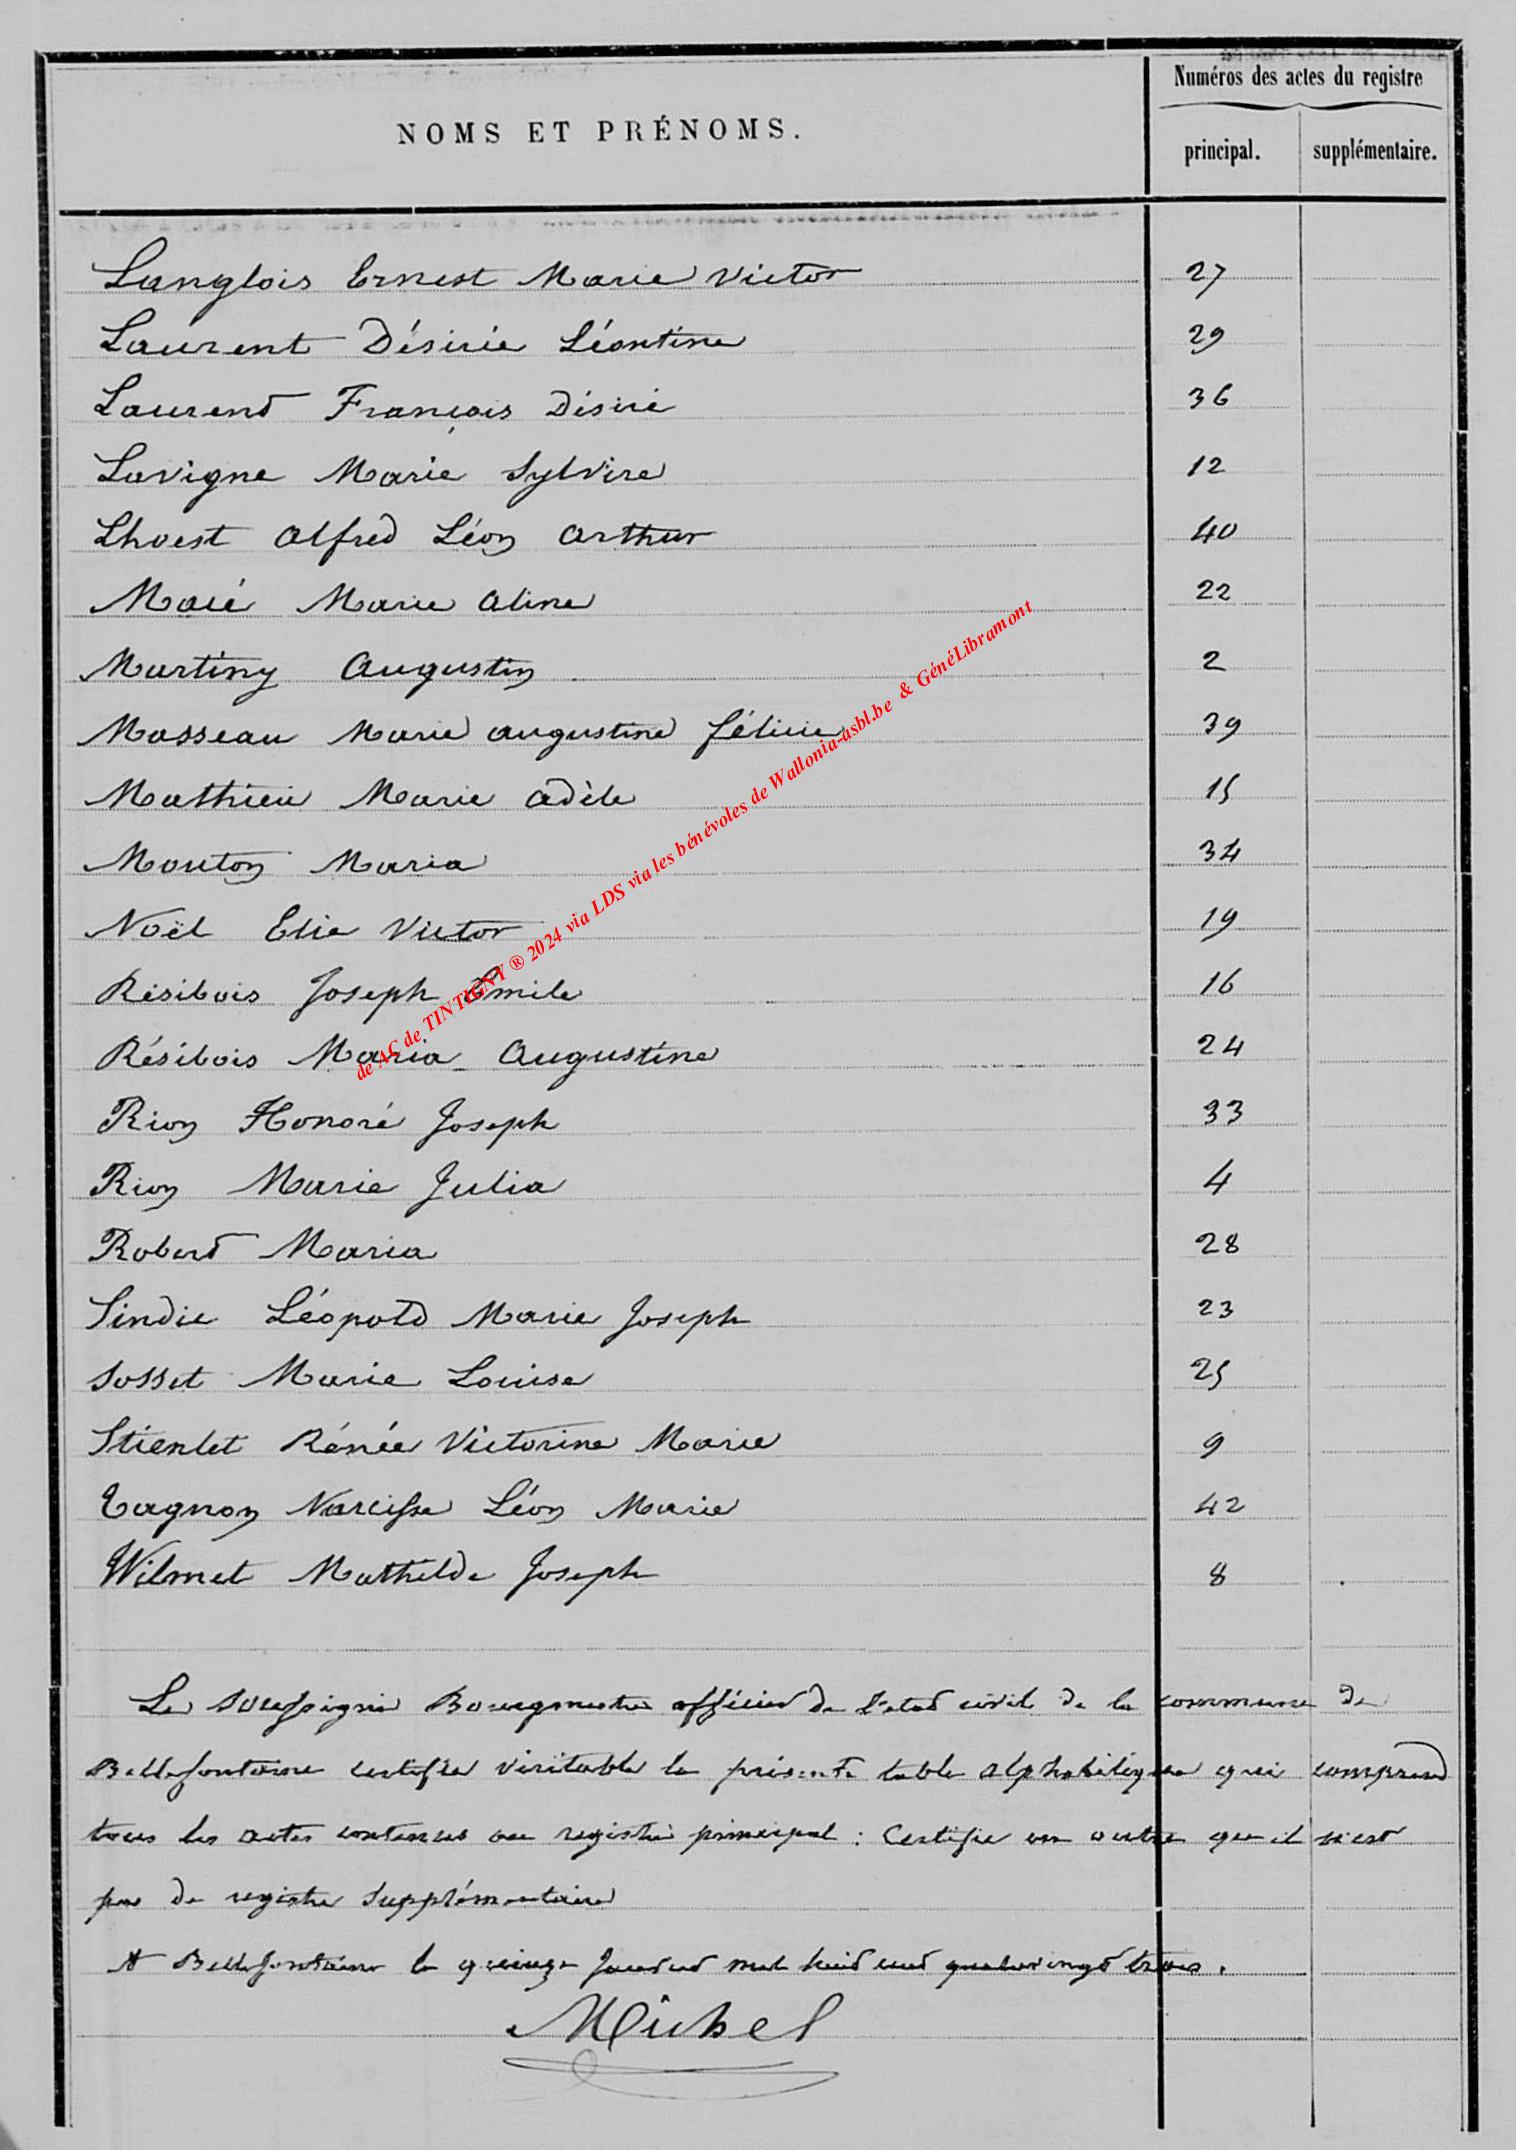 Numéros des actes du registre
NOMS ET PRÉNOMS.
principal. supplémentaire.
Langlois Ernest Marie Victor 27
Laurent Désirée Léontine 29
Laurent François Désiré 36
Lavigne Marie Sylvire 12
Lhoest Alfred Léon Arthur 40
Marie Aline 22
Martiny Augustin 2
Masseau Marie Augustine Félicie 39
Mathieu Marie Adèle 15
Mouton Maria 34
Noël Elie Victor 19
Résibois Joseph Emile 16
Résibois Maria Augustine 24
Rion Honoré Joseph 33
Rion Marie Julia 4
Robert Maria 28
Sindic Léopold Marie Joseph 23
Sosset Marie Louise 25
Stienlet Rénée Victorine Marie 9
Tagnon Narcisse Léon Marie 42
Wilmet Mathilde Joseph 8
Le soussigné Bourgmestre officier de l'état civil de la commune de
Bellefontaine certifie véritable la présente table alphabétique qui comprend
tous les actes contenus au registre principal : Certifie en outre que il n'est
pas de registre supplémentaire
A Bellefontaine le quinze Janvier mil huit cent quatrevingt trois.
Michel
de AC de TINTIGNY ® 2024 via LDS via les bénévoles de Wallonia-asbl.be & GénéLibramont